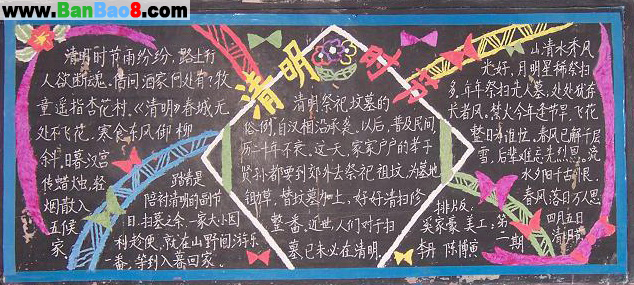 www.BanBao8.com
清明时节
清明时节雨纷纷,路上行
人欲断魂。借问酒家何处有?牧
童遥指杏花村。《清明》春城无
处不飞花,寒食东风御柳
斜。日暮汉宫
传蜡烛,轻
烟散入
五侯
家
踏青是
陪衬清明的副节
目,扫墓之余,一家大小因
利趁便,就在山野间游乐
一番,等到入暮回家。
清明祭祀坟墓的
俗例,自汉相沿承袭。以后,普及民间,
历二千年不衰。这一天,家家户户的孝子
贤孙都要到郊外去祭祀祖坟,为墓地
锄草,替坟墓加土,好好清扫修
整一番。近世,人们对于扫
墓已未必在清明。
山清水秀风
光好,月明星稀祭扫
多,年年祭扫先人墓,处处犹存
长者风。禁火今年逢节早,飞花
整日
春风已解千层
雪,后辈难忘先烈恩。流
水夕阳千古恨,
春风落日万人思
排版:
奚家豪 美工:
李丹 陈博寅
第二期
四月五日
清明节